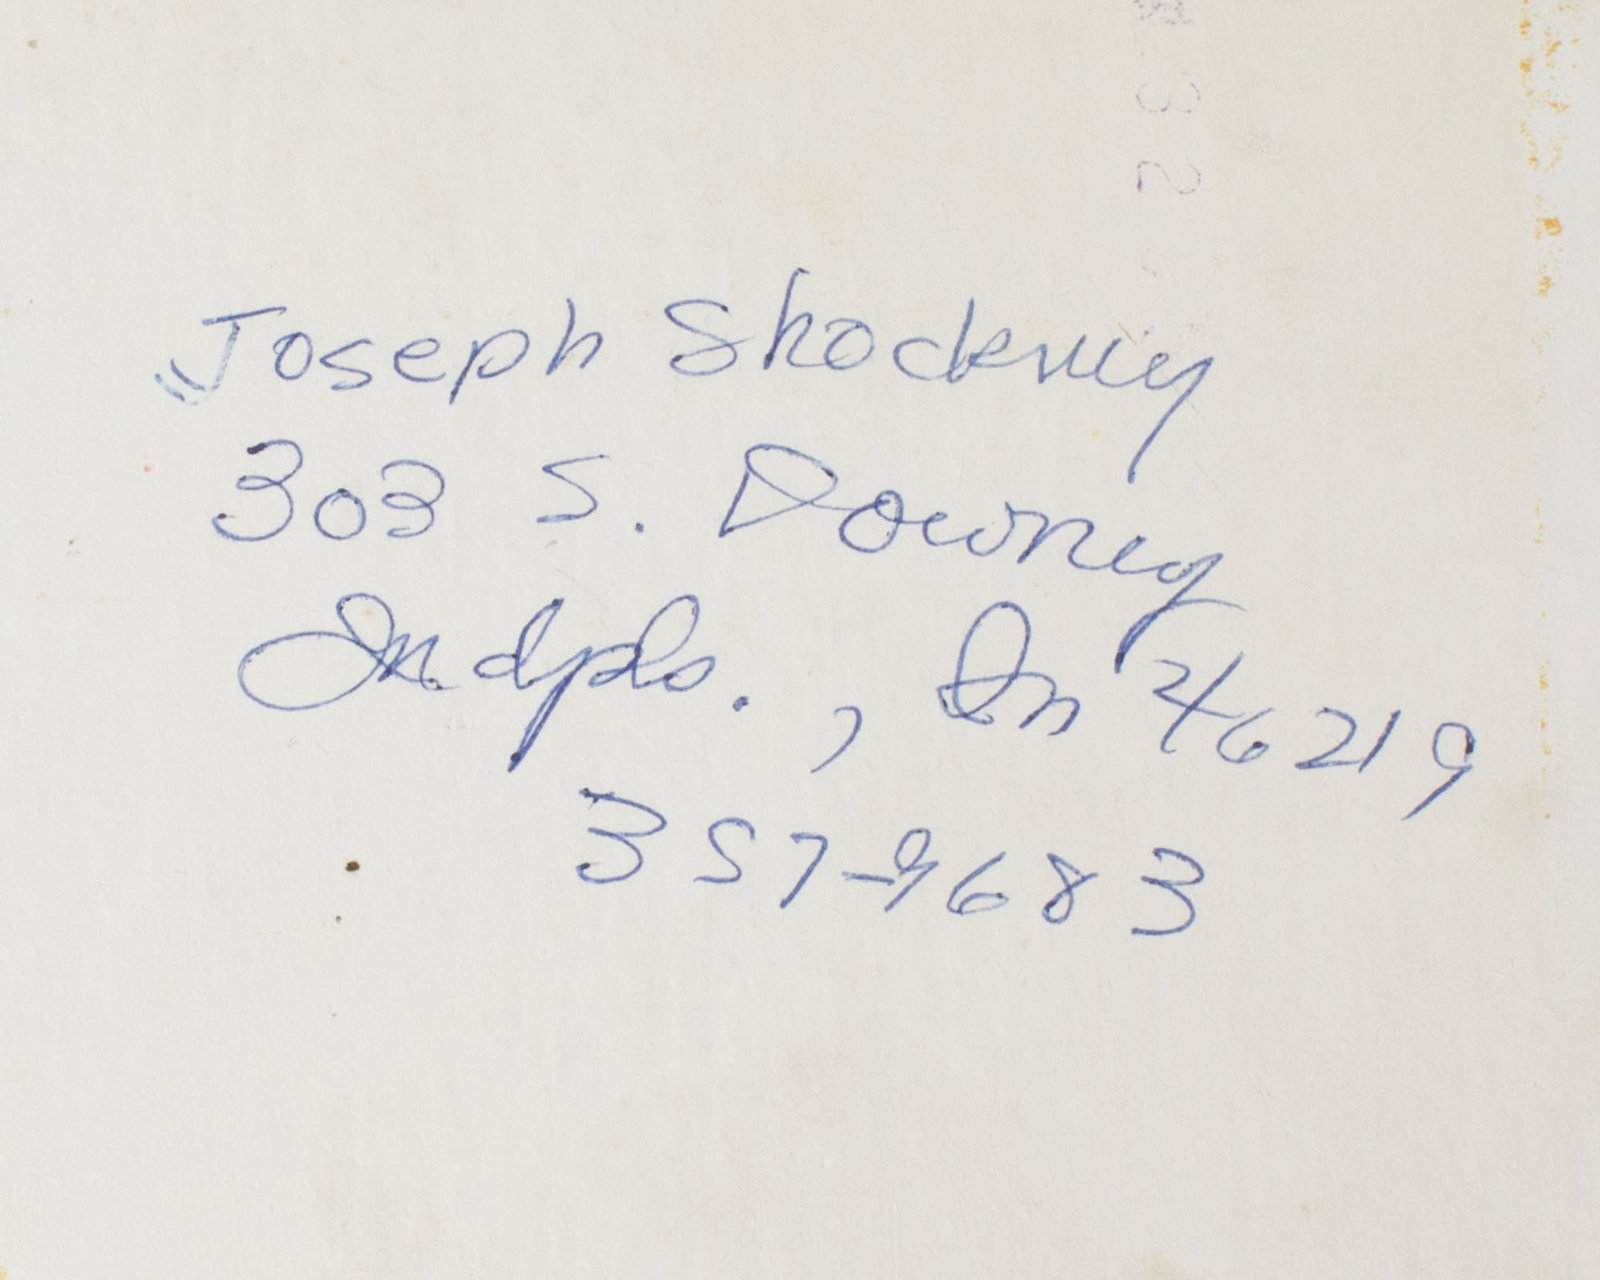 Joseph Shockney
303 S. Downey
Indpls. , In 46219
357-9683
32